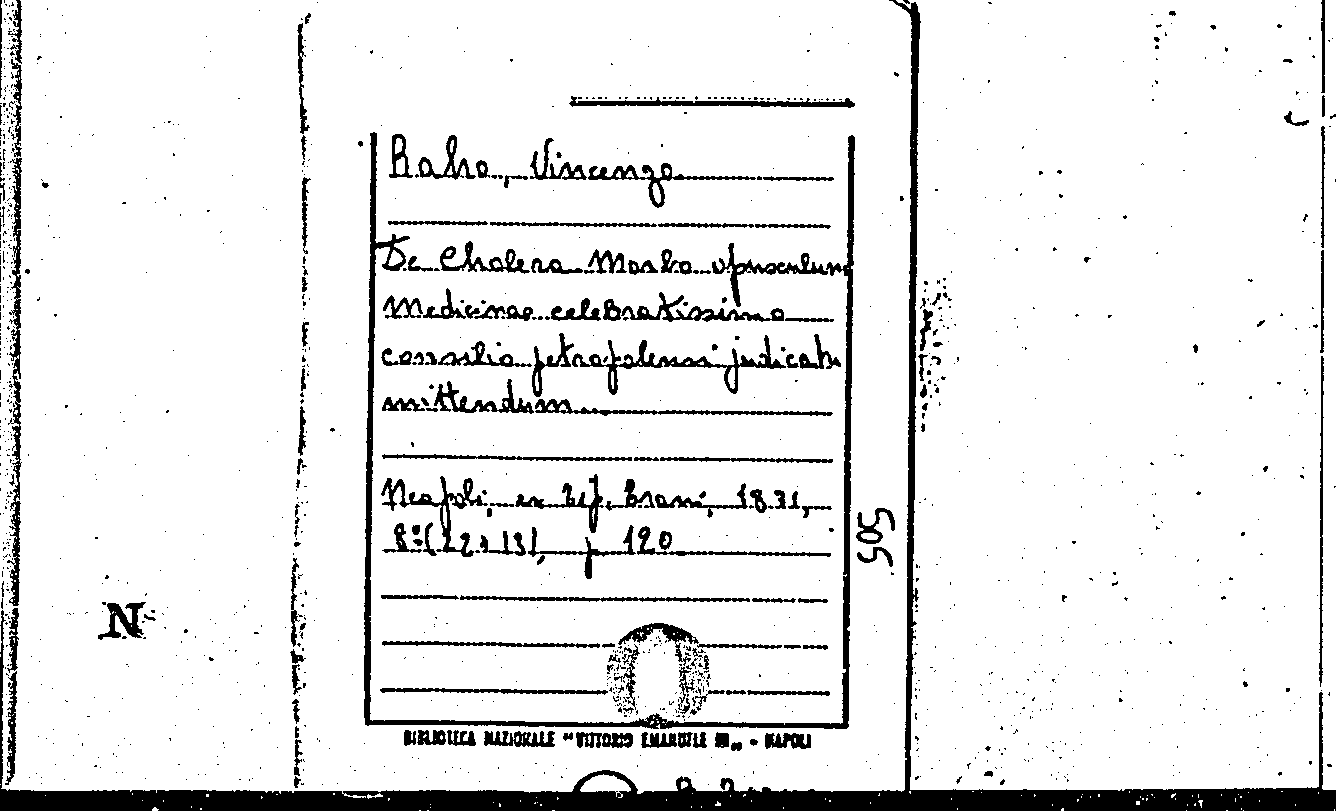 Raho, Vincenzo
De Cholera Morbo opusculum
Medicinae celebratissimo
consilio petropolensi judicatu
mittendum...
Neapoli, ex tip. Brani, 1831,
8º (22x13), p 120
505
N
BIBLIOTECA NAZIONALE "VITTORIO EMANUELE III" - NAPOLI